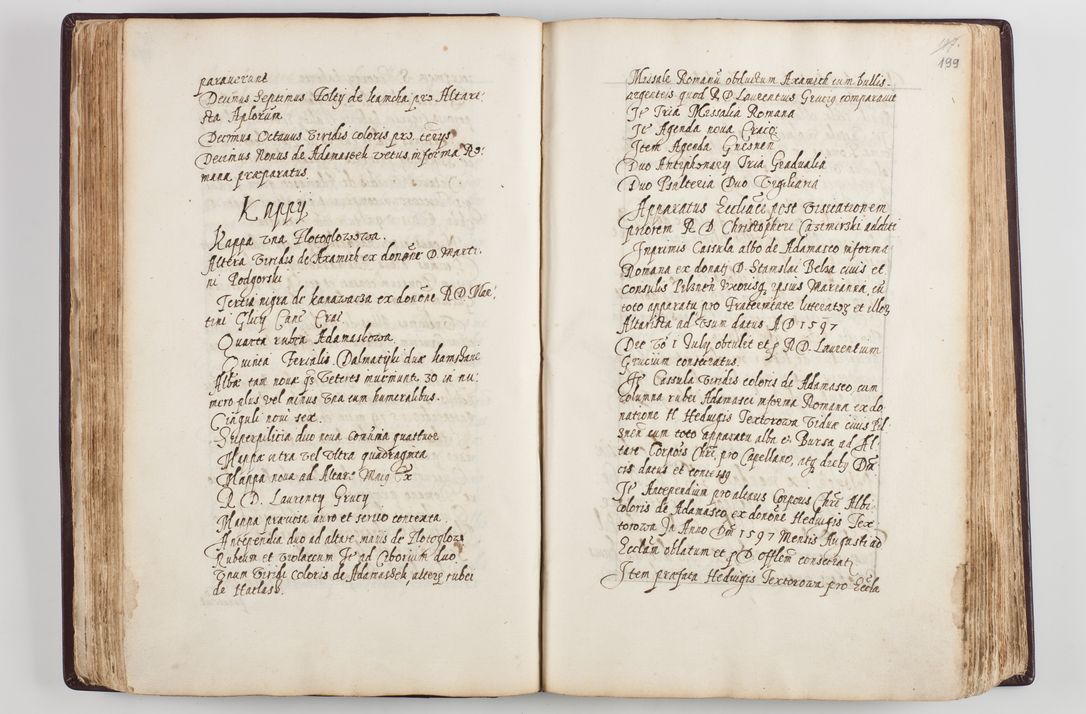 parauerunt
Decimus Septimus Zolty de kamcha pro Altari
sta Aplorum
Decimus Octauus Viridis coloris pro
Decimus Nonus de Adamassek vetus in forma Ro:
mana præparatus.
Kappy
Kappa vna Zlotoglowowa.
Altera Viridis de Axamith ex donõne D. Marti:
ni Podgorski
Tertia nigra de kanawacza ex donõne R D Mar:
tini Glicy Canc Crac
Quarta rubra Adamaskowa.
Quinta Ferialis Dalmatyki duæ
Albæ tam nouæ qz Veteres 30 in nu:
mero plus vel minus vna cum humeralibus.
Cinguli noui sex
Superpilicia duo noua quattuor
Mappæ citra vel vltra quadraginta
Mappa noua ad Altare Maiq Ex
R D. Laurenty Grucy
Mappa præciosa auro et serico contexta.
Antependia duo ad altare maius de Zlotoglow
Rubeum et Violaceum Jt ad Ciborium duo
Vnum Viridi coloris de Adamassek alterq rubei
de Hatlasu.
199
Missale Romanũ obductum Axamith cum bullis
argenteis quod R D Laurentius Grucig comparauit
Jt Tria Missalia Romana
Jt Agenda noua Cracoq
Jtem Agenda Gnesnen
Duo Antiphonary Tria Gradualia
Duo Psalteria Duo Vigiliaria
Apparatus Eccliaci post Visitationem
priorem R D. Christopheri Casimirski additi
Jnprimis Cassula albo de Adamasco in forma
Romana ex donatj D. Stanislai Belza ciuis et
Consulis Pilznen Vxorisq ipsius Marianna, cũ
toto apparatu pro Fraternitate literatoz et illoz
Altarista ad Vsum datus A D 1597
Dee 1 July obtulit et p R D. Laurentium
Grucium consecratus.
Jt Cassula Viridis coloris de Adamasco cum
columna rubei Adamasci in forma Romana ex do
natione H Heduigis Textorowa Viduæ ciuis Pil
znen cum toto apparatu alba et Bursa ad Al:
tare Corpois Chri, pro Capellano, atq
cis datus et
Jt Antependium pro altaris Corpous Chri Albi
coloris de Adamasco ex donõne Heduigis Tex
torowa Jn Anno Dni 1597 Mensis Augusti ad
Ecclam oblatum et p D. offlem consecratj
Jtem præfata Heduigis Textorowa pro Eccla